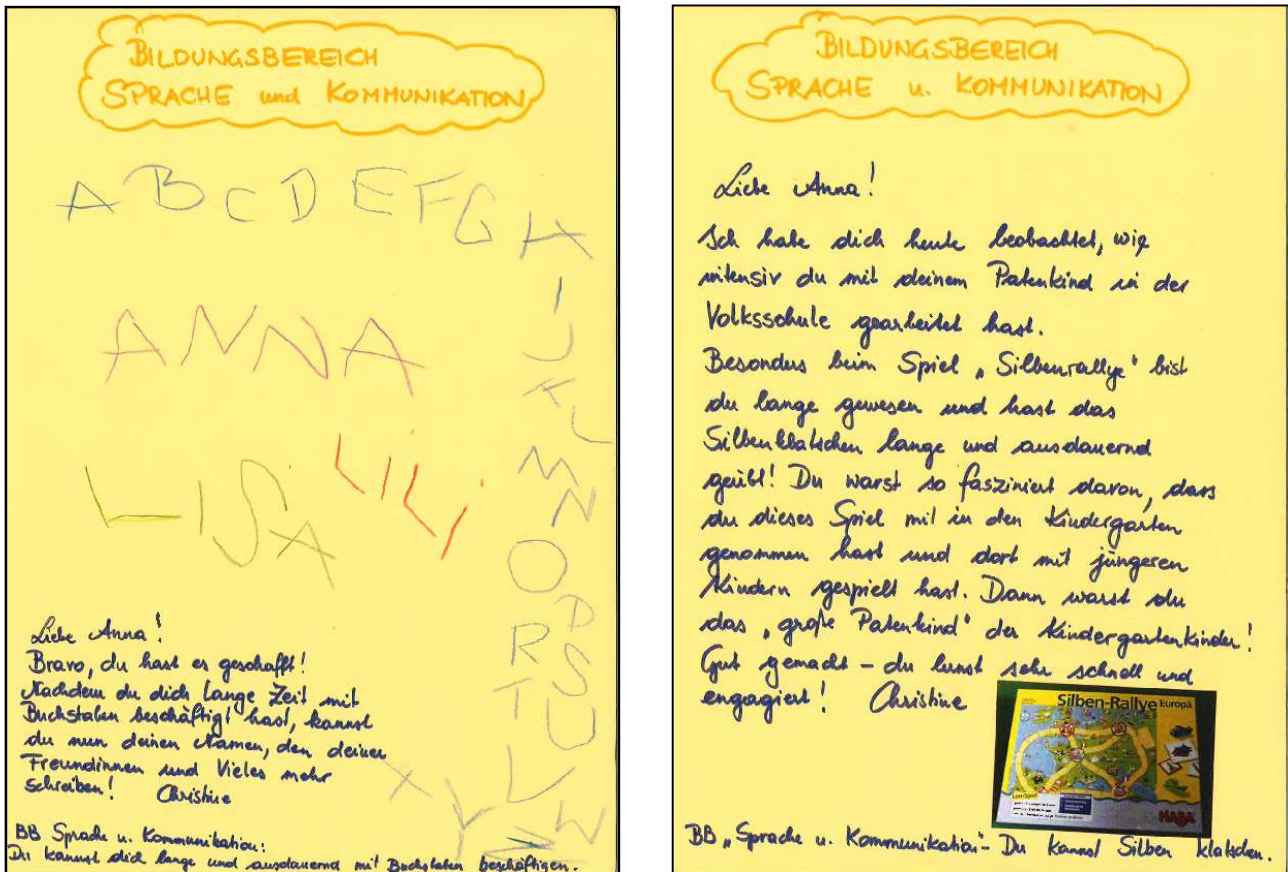 BILDUNGSBEREICH
SPRACHE und KOMMUNIKATION
A B C D E F G H
I
J
K L
M
N
O P
R S
T U
V W
X Y Z
ANNA
LISA
LiLi
Liebe Anna!
Bravo, du hast es geschafft!
Nachdem du dich lange Zeit mit
Buchstaben beschäftigt hast, kannst
du nun deinen Namen, den deiner
Freundinnen und Vieles mehr
schreiben! Christine
BB Sprache u. Kommunikation:
Du kannst dich lange und ausdauernd mit Buchstaben beschäftigen.
BILDUNGSBEREICH
SPRACHE u. KOMMUNIKATION
Liebe Anna!
Ich habe dich heute beobachtet, wie
intensiv du mit deinem Patenkind in der
Volksschule gearbeitet hast.
Besonders beim Spiel „Silbenrallye" bist
du lange gewesen und hast das
Silbenklatschen lange und ausdauernd
geübt! Du warst so fasziniert davon, dass
du dieses Spiel mit in den Kindergarten
genommen hast und dort mit jüngeren
Kindern gespielt hast. Dann warst du
das „große Patenkind" der Kindergartenkinder!
Gut gemacht – du lernst sehr schnell und
engagiert! Christine
Silben-Rallye Europa
HABA
BB „Sprache u. Kommunikation" – Du kannst Silben klatschen.